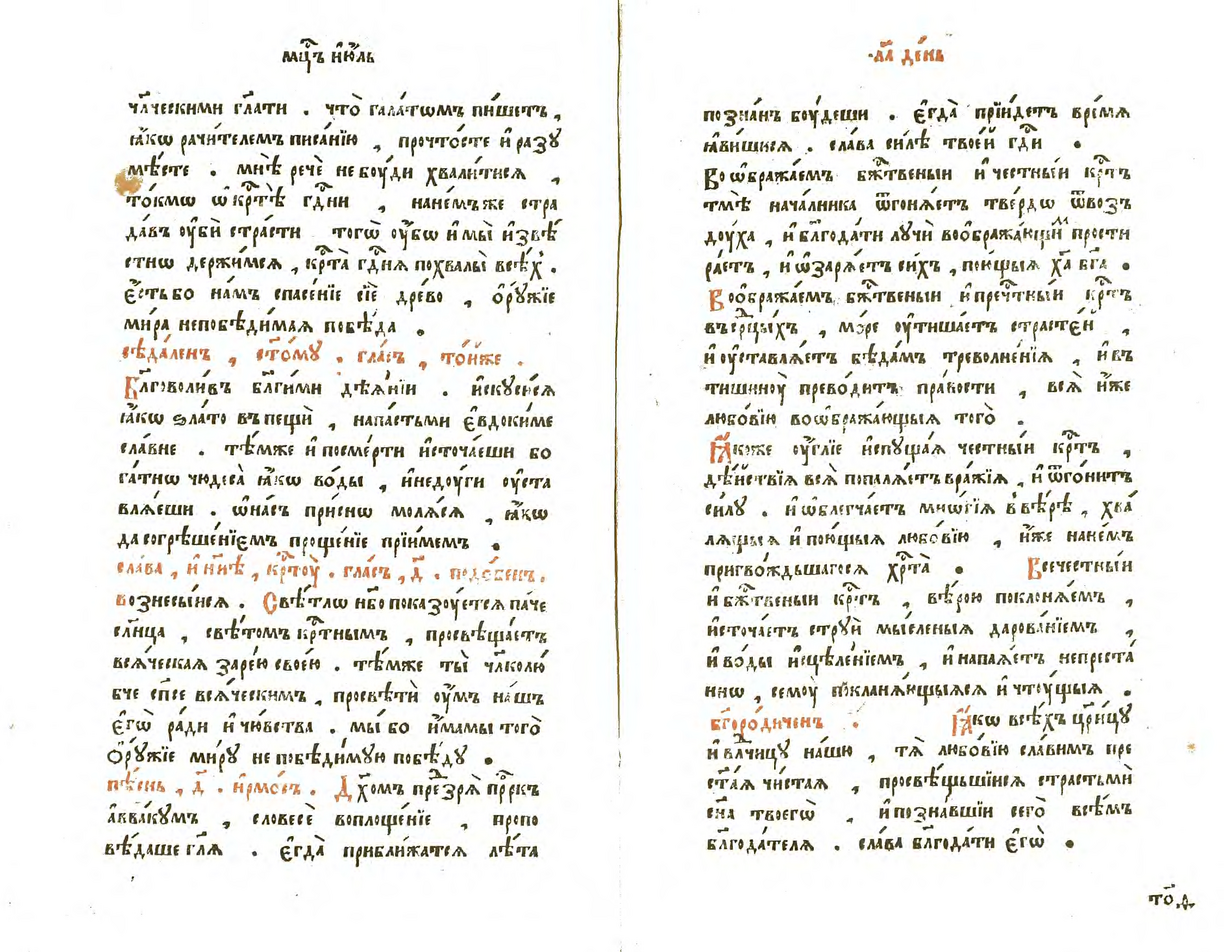 мц҃ъ и҆ю҆́ль
чл҃ческими гл҃ати . что̀ гала́тѡмъ пи́шетъ ,
ꙗ҆́кѡ рачи́телемъ писа́нїю , прочто́сте и҆ разꙋ
мѣ́сте . мнѣ́ речѐ не боу́ди хвали́тися ,
то́кмѡ ѡ҆ крⷭ҇тѣ̀ гⷭ҇дни , нане́мъже стра
да́въ оу҆бѝ стра́сти тогѡ̀ оу҆́бѡ и҆ мы̀ и҆звѣ́
стнѡ держи́мся , крⷭ҇та̀ гⷭ҇дня похвалы̀ всѣ́х .
є҆́сть бо на́мъ спасе́нїе сїѐ дре́во , ѻ҆рꙋ́жїе
ми́ра непобѣди́мая побѣ́да .
сѣда́ленъ , ст҃о́мꙋ . гла́съ , то́йже .
Бл҃говоли́въ бл҃ги́ми дѣя́нїи . и҆скꙋси́ся
ꙗ҆́кѡ ѕла́то въ пещѝ , напа́стьми є҆вдоки́ме
сла́вне . тѣ́мже и҆ посме́рти и҆сточа́еши бо
га́тнѡ чюдеса̀ ꙗ҆́кѡ во́ды , и҆ недоу́ги оу҆ста
вля́еши . ѡ҆ на́съ при́снѡ моля́ся , ꙗ҆́кѡ
да согрѣше́нїємъ проще́нїе прїи́мемъ .
сла́ва , и҆ ны́нѣ , крⷭ҇тоу̀ . гла́съ , д҃ . подо́бенъ .
вознесы́ися . Свѣ́тлѡ не́бо показоу́ется па́че
сл҃нца , свѣ́томъ крⷭ҇тнымъ , просвѣща́етъ
вся́ческая заре́ю свое́ю . тѣ́мже ты̀ чл҃колю́
бче сп҃се вся́ческимъ , просвѣтѝ оу҆́мъ на́шъ
є҆гѡ̀ ра́ди и҆ чю́вства . мы́ бо и҆́мамы того̀
ѻ҆рꙋ́жїе ми́рꙋ не побѣди́мꙋю побѣ́дꙋ .
пѣ́снь , д҃ . і҆рмо́съ . Дх҃омъ презря̀ прⷪ҇ркъ
а҆ввакꙋ́мъ , словесѐ воплоще́нїе , пропо
вѣ́даше гл҃я . є҆гда̀ прибли́жатся лѣ́та
л҃а де́нь
позна́нъ боу́деши . є҆гда̀ прїи́детъ вре́мя
ꙗ҆ви́шися . сла́ва си́лѣ твое́й гдⷭ҇и .
Воѡ҆бража́емъ бжⷭ҇твеныи и҆ че́стныи крⷭ҇тъ
тмѣ̀ нача́лника ѿгоня́етъ тве́рдѡ ѿвозъ
доу́ха , и҆ бл҃года́ти лꙋчѝ воѻбража́ющимъ прости
ра́етъ , и҆ ѡ҆заря́етъ си́хъ , пою́щыя хаⷭ҇ бг҃а .
Воѻбража́емъ бжⷭ҇твеныи и҆ пречⷭ҇тныи крⷭ҇тъ
въ срⷣцыхъ , мо́ре оу҆тиша́етъ страсте́й ,
и҆ оу҆ставля́етъ бѣда́мъ треволне́нїя , и҆ въ
тишиноу̀ прево́дитъ пра́вости , вся̀ и҆́же
любо́вїю воѡ҆бража́ющыя того̀ .
Ꙗ҆́коже оу҆́глїе и҆спꙋща́я че́стныи крⷭ҇тъ ,
дѣ́йствїя вся̀ попаля́етъ вра́жїя , и҆ ѿго́нитъ
си́лꙋ . и҆ ѡ҆блегча́етъ мнѡ́гїя в вѣ́рѣ , хва́
ля́щыя и҆ пою́щыя любо́вїю , и҆́же нане́мъ
пригво́ждьшагося хрⷭ҇та̀ . Всече́стныи
и҆ бжⷭ҇твеныи крⷭ҇тъ , вѣ́рою поклоня́емъ ,
и҆сточа́етъ стрꙋи̑ мы́сленыя дарова́нїемъ ,
и҆ во́ды и҆сцѣле́нїемъ , и҆ напая́етъ непреста́
ннѡ , семоу̀ покланя́ющыяся и҆ чтоу́щыя .
бг҃оро́диченъ . Ꙗ҆́кѡ всѣ́хъ црⷭ҇и́цꙋ
и҆ влⷣчицꙋ на́шю , тя̀ любо́вїю сла́вимъ пре
ст҃а́я чи́стая , просвѣщьши́ися страстьмѝ
сн҃а твоегѡ̀ , и҆ позна́вшїи сего̀ всѣ́мъ
бл҃года́теля . сла́ва бл҃года́ти є҆гѡ̀ .